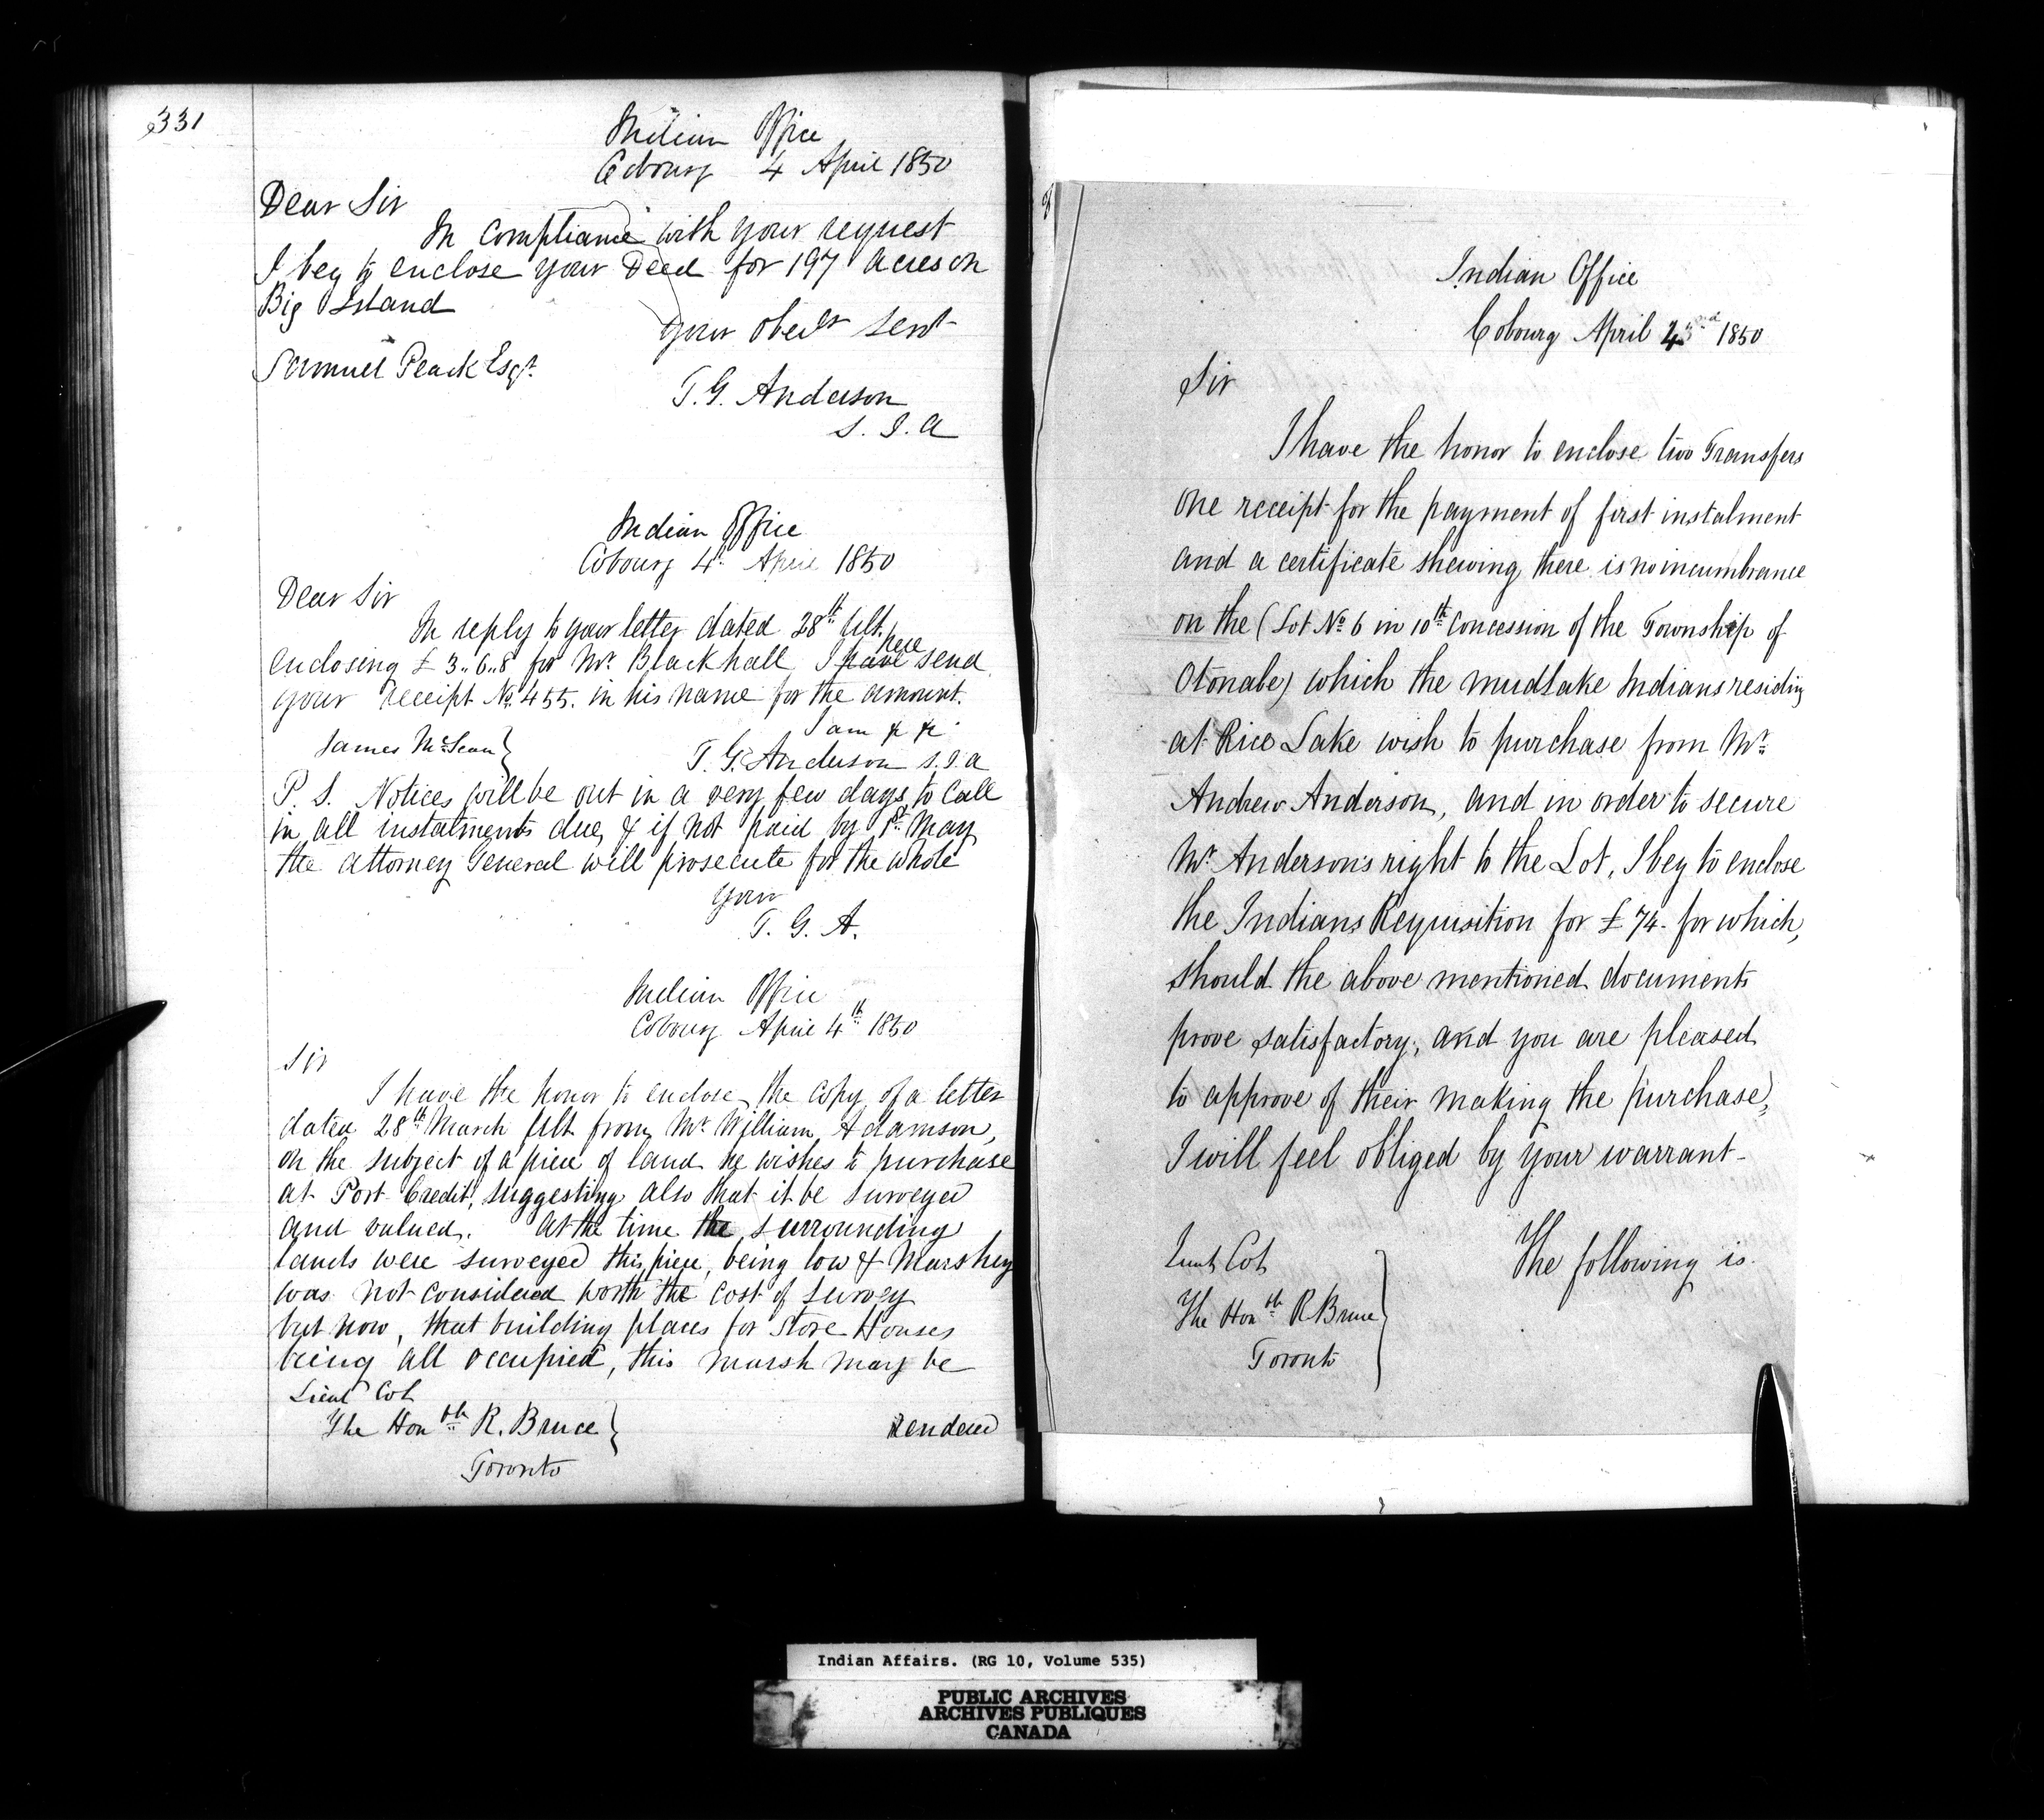 331
Indian Office
Cobourg 4 April 1850
Dear Sir
In compliance with your request
I beg to enclose your Deed for 197 acres on
Big Island
your obedt servt
Samuel Peack Esqr.
T. G. Anderson
S. I. A
Indian Office
Cobourg 4th April 1850
Dear Sir
In reply to your letter dated 28th Ult.
enclosing £3..6..8 for Mr. Blackhall I have here send
your receipt No. 455. in his name for the amount.
I am &c &c
James McLean
T. G. Anderson S. I. A
P. S. Notices will be out in a very few days to call
in all instalments due, & if not paid by 1st May
the attorney General will prosecute for the whole
your
T. G. A.
Indian Office
Cobourg April 4th 1850
Sir
I have the honor to enclose the copy of a letter
dated 28th March Ult from Mr. William Adamson,
on the subject of a piece of land he wishes to purchase
at Port Credit, suggesting also that it be surveyed
and valued. At the time the surrounding
lands were surveyed this piece, being low & Marshey
was not considered worth the cost of survey
but now, that building places for Store Houses
being all occupied, this marsh may be
Lieut Col
The Honble R. Bruce
Toronto
rendered
Indian Office
Cobourg April 1850
Sir
I have the honor to enclose two Transfers
one receipt for the payment of first instalment
and a certificate shewing there is no incumbrance
on the (Lot No 6 in 10th Concession of the Township of
Otonabe) which the mudlake Indians residing
at Rice Lake wish to purchase from Mr.
Andrew Anderson, and in order to secure
Mr. Anderson's right to the Lot, I beg to enclose
the Indians Requisition for £74- for which,
should the above mentioned documents
prove satisfactory, and you are pleased
to approve of their making the purchase,
I will feel obliged by your warrant-
Lieut Col
The Honble R Bruce
Toronto
The following is.
Indian Affairs. (RG 10, Volume 535)
PUBLIC ARCHIVES
ARCHIVES PUBLIQUES
CANADA